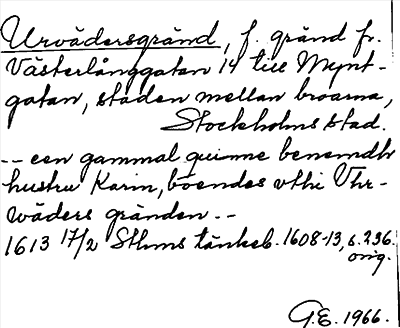 Urvädersgränd, f. gränd fr.
Västerlånggatan 14 till Mynt-
gatan, staden mellan broarna,
Stockholms stad.
-- een gammal quinne benemdh
hustru Karin, böendes vthi Vhr-
wäders gränden --
1613 17/2 Sthms tänkeb. 1608-13, s. 236.
orig.
G.E. 1966.